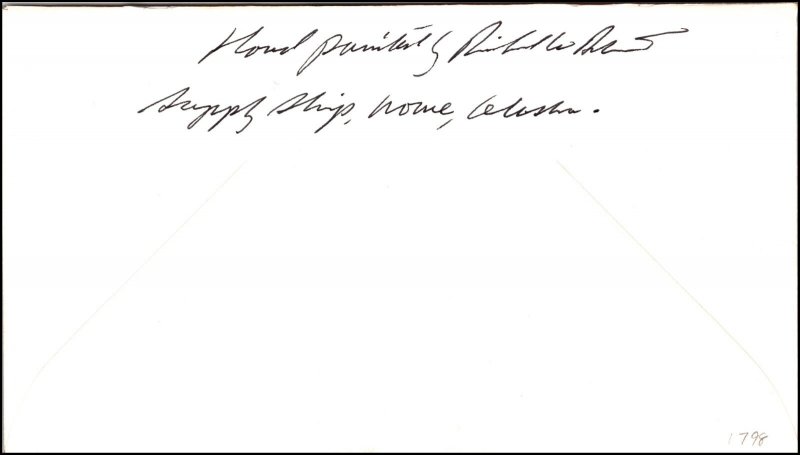 Hand painted by Richard W
Supply Ship, Nome, Alaska.
1798